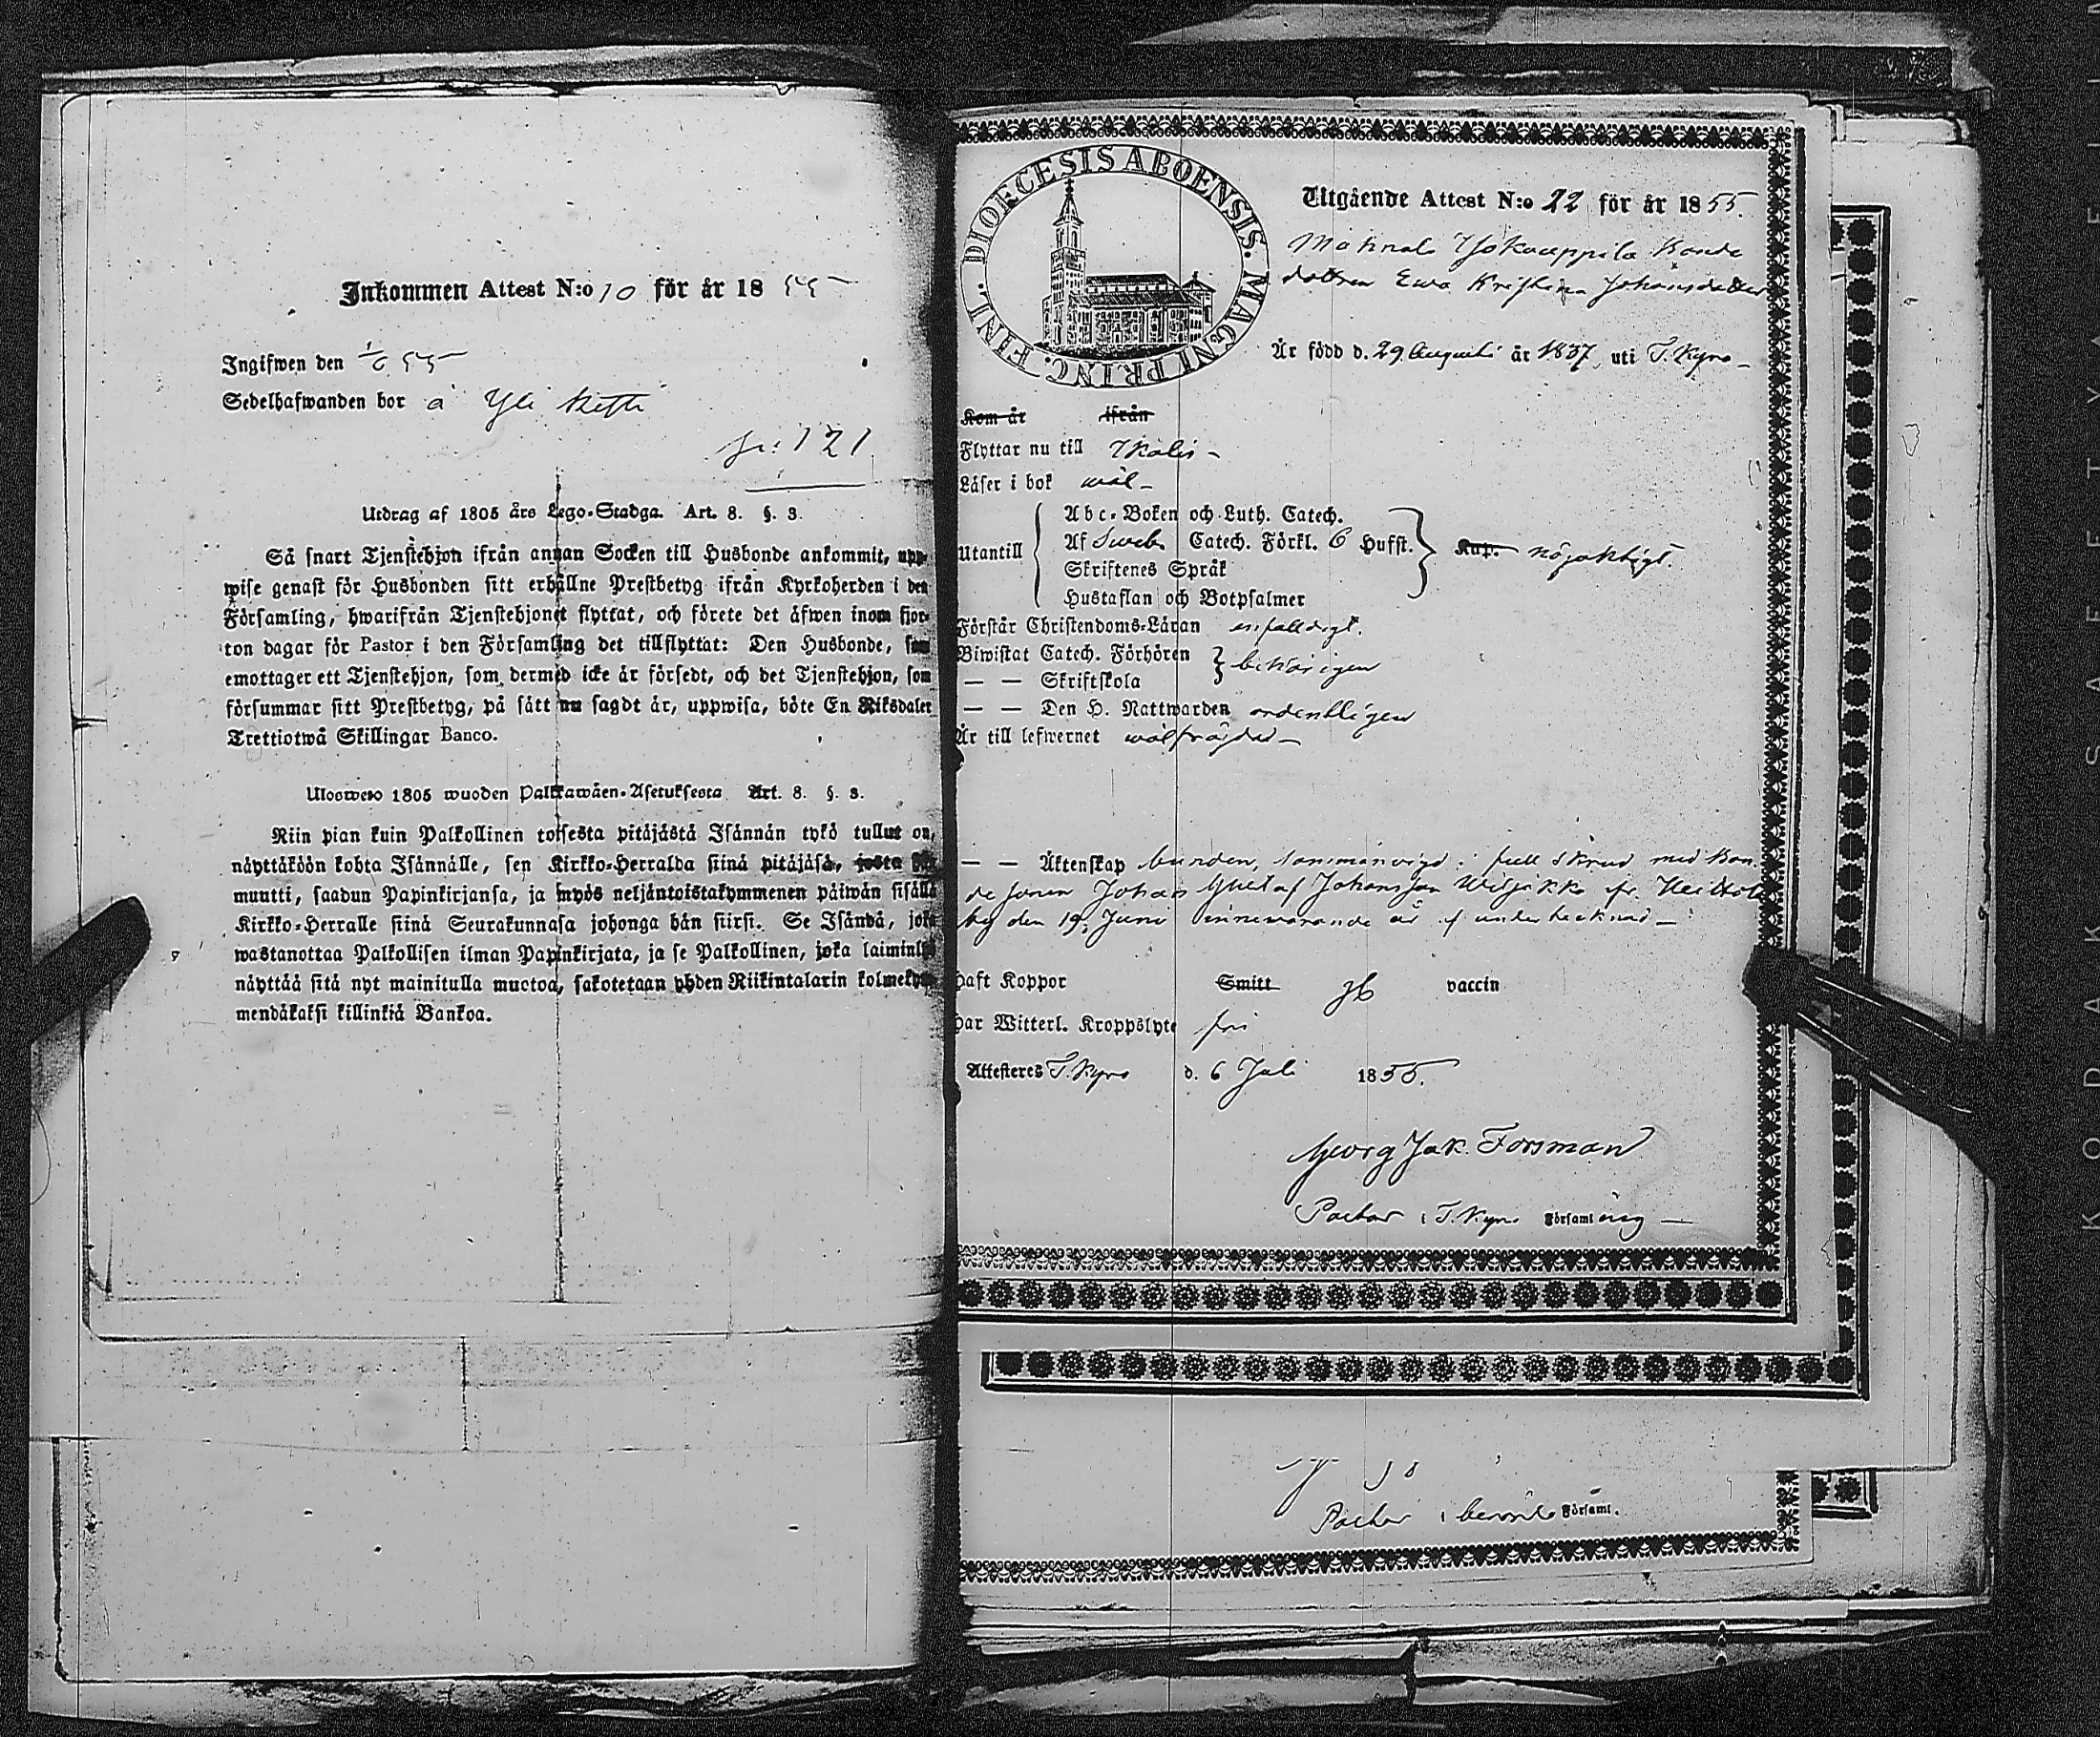 Inkommen Attest N:o 10 för år 1855
Ingifwen den 1/6 55
Sedelhafwanden bor å Yli
fr: 121.
Utdrag af 1805 års Lego-Stadga. Art. 8. §. 3.
Så snart Tjenstehjon ifrån annan Socken till Husbonde ankommit, upp-
wise genast för Husbonden sitt erhållne Prestbetyg ifrån Kyrkoherden i den
Församling, hwarifrån Tjenstehjonet flyttat, och förete det äfwen inom fjor-
ton dagar för Pastor i den Församling det tillflyttat: Den Husbonde, som
emottager ett Tjenstehjon, som dermed icke är försedt, och det Tjenstehjon, som
försummar sitt Prestbetyg, på sätt nu sagdt är, uppwisa, böte En Riksdaler
Trettiotwå Skillingar Banco.
Ulosweto 1805 wuoden Palkkawäen-Asetuksesta Art. 8. §. 3.
Niin pian kuin Palkollinen toisesta pitäjästä Isännän tykö tullut on,
näyttäköön kohta Isännälle, sen Kirkko-Herralda siinä pitäjäsä, josta hän
muutti, saadun Papinkirjansa, ja myös neljäntoistakymmenen päiwän sisällä
Kirkko-Herralle siinä Seurakunnasa johonga hän siirsi. Se Isändä, joka
wastanottaa Palkollisen ilman Papinkirjata, ja se Palkollinen, joka laiminlyö
näyttää sitä nyt mainitulla muotoa, sakotetaan yhden Riikintalarin kolmekym-
mendäkaksi killinkiä Bankoa.
DIOECESIS ABOENSIS. MAGNI PRINC. FINL.
Utgående Attest N:o 22 för år 1855.
dottren Ewa Kristina Johansdotter
Är född d. 29. Augusti år 1837, uti T. Kyro
Kom år ifrån
Flyttar nu till Ikalis
Läser i bok wäl
Utantill
Abc-Boken och Luth. Catech.
Af Sweb. Catech. Förkl. 6 Hufst.
Skriftenes Språk
Hustaflan och Botpsalmer
nöjaktigt.
Förstår Christendoms-Läran enfaldigt.
Biwistat Catech. Förhören
— — Skriftskola
behörigen
— — Den H. Nattwarden ordentligen
Är till lefwernet wälfrägdad
— — Äktenskap bunden, sammanvigd i full skrud med Bon-
de sonen Johan Gustaf Johansson fr.
by den 19. Juni innewarande år af undertecknad
haft Koppor Smitt vaccin
har Witterl. Kroppslyte fri
Attesteres T. Kyro d. 6 Juli 1855.
Georg Jak. Forsman
Pastor i T. Kyro Församling
Pastor i Församl.
KODAK SAFETY FILM